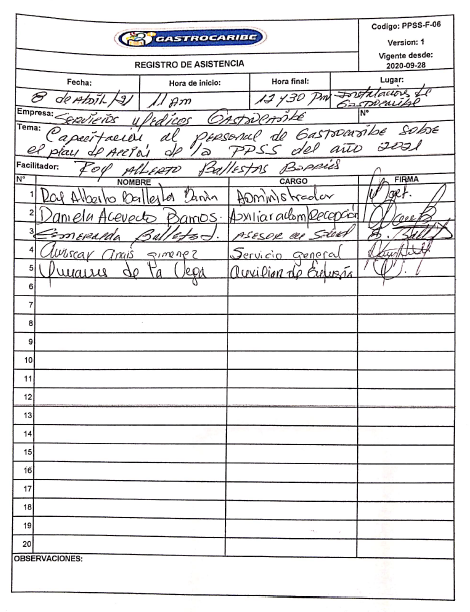 GASTROCARIBE
Codigo: PPSS-F-06
Version: 1
Vigente desde:
2020-09-28
REGISTRO DE ASISTENCIA
Fecha: Hora de inicio: Hora final: Lugar:
8 de Abril/21 11 Am 12 y 30 Pm Instalación de
Gastrocaribe
Empresa: Servicios Medicos Gastrocaribe N°
Tema: Capacitación al personal de Gastrocaribe sobre
el plan de Acción de la PPSS del año 2021
Facilitador: Roy Alberto Ballestas Barrios
N° NOMBRE CARGO FIRMA
1 Roy Alberto Ballestas Administrador
2 Daniela Acevedo Ramos. Recepción
3 Esmeralda Ballestas. Asesor de Salud
4 Anais gimenez Servicio general
5 de la Vega Auxiliar de
6
7
8
9
10
11
12
13
14
15
16
17
18
19
20
OBSERVACIONES: